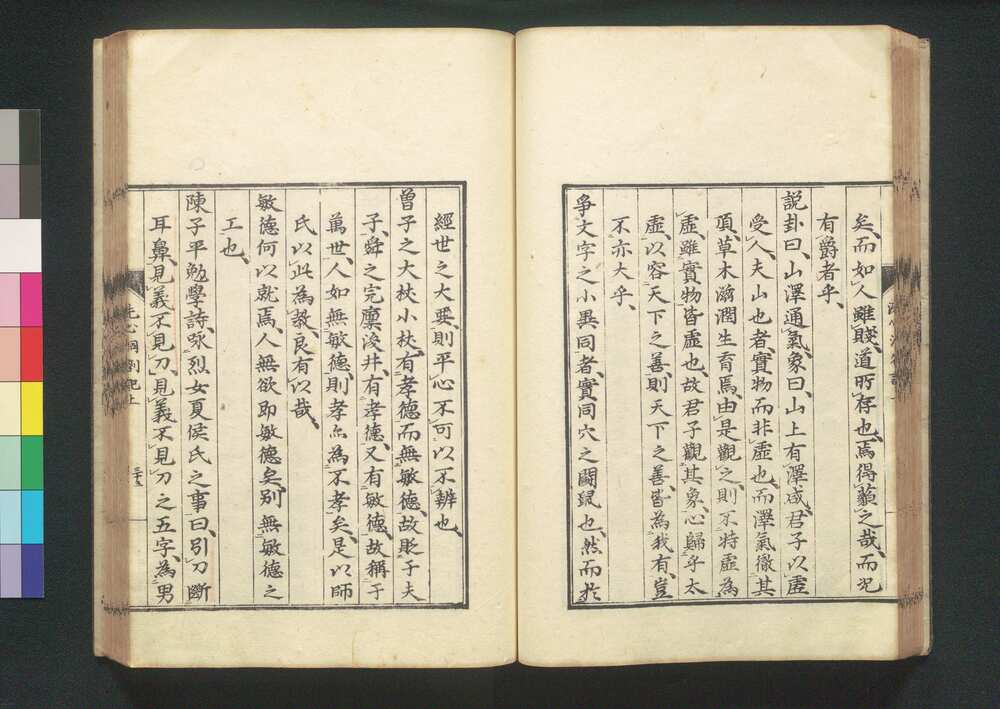 矣、而如人雖賤、道所存也、焉得藐之哉、而況
有爵者乎、
說卦曰、山澤通氣、象曰、山上有澤咸、君子以虛
受人、夫山也者、實物而非虛也、而澤氣徹其
頂、草木滋潤生育焉、由是觀之、則不特虛為
虛、雖實物皆虛也、故君子觀其象、心歸乎太
虛、以容天下之善、則天下之善、皆為我有、豈
不亦大乎、
爭文字之小異同者、實同穴之鬪鼠也、然而於
經世之大要、則平心不可以不辨也、
曾子之大杖小杖、有孝德而無敏德、故貶于夫
子、舜之完廩浚井、有孝德、又有敏德、故稱于
萬世、人如無敏德、則孝亦為不孝矣、是以師
氏以此為教、良有以哉、
敏德何以就焉、人無欲即敏德矣、別無敏德之
工也、
陳子平勉學詩、咏烈女夏侯氏之事曰、引刀斷
耳鼻、見義不見刀、見義不見刀之五字、為男
洗心洞劄記上
三十六